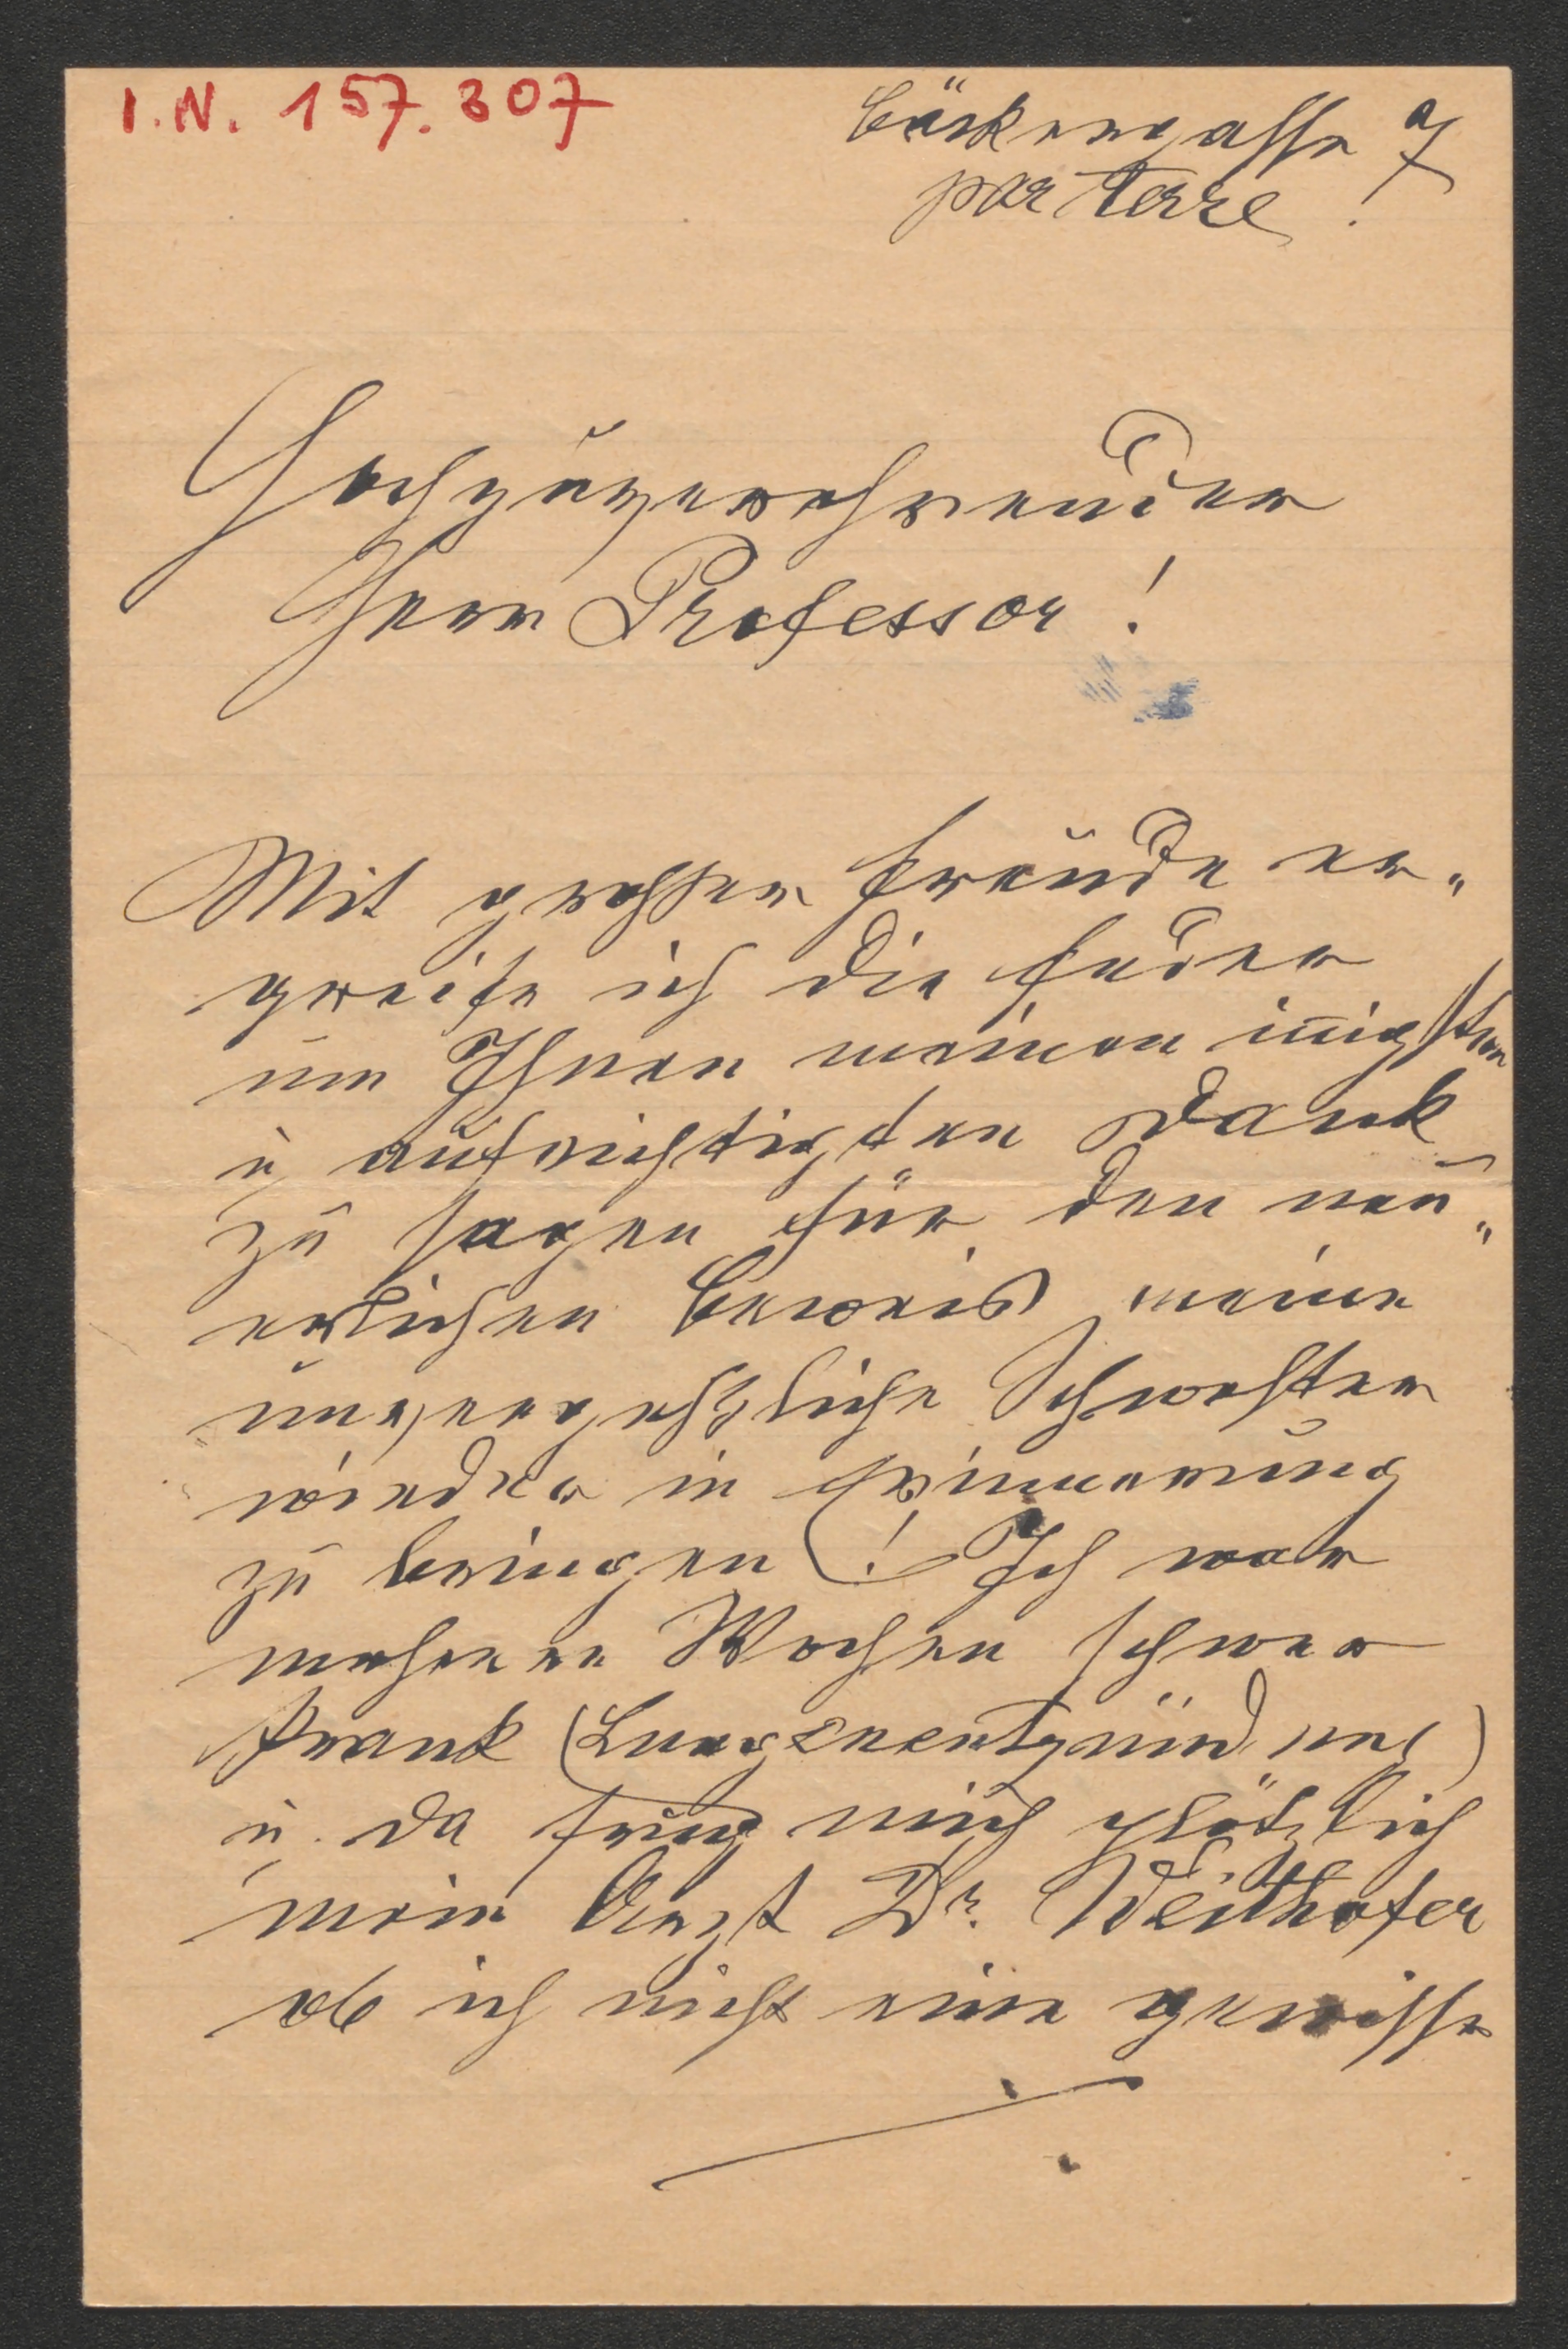 I.N. 157.307
Bäckergasse 7
parterre!
Hochzuverehrender
Herr Professor!
Mit großer Freude er„
greife ich die Feder
um Ihnen meinen iñigsten
u. aufrichtigsten Dank
zu sagen für den neu„
erlichen Beweis meine
unvergeßliche Schwester
wieder in Erinnerung
zu bringen! Ich war
mehrere Wochen schwer
krank (Lungenentzündung)
u. da frug mich plötzlich
mein Arzt Dr. Weithofer
ob ich nicht eine gewisse